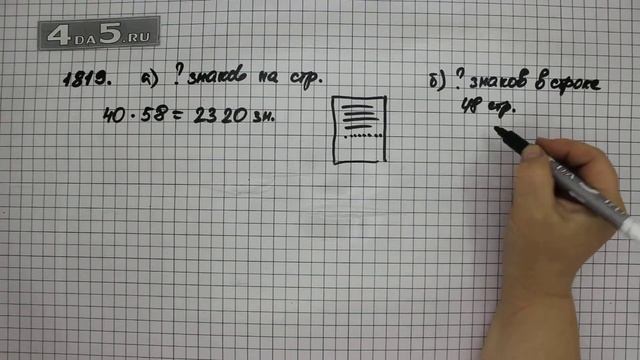 4DA5.RU
1819. а) ? знаков на стр.
40 · 58 = 2320 зн.
б) ? знаков в строке
48 стр.